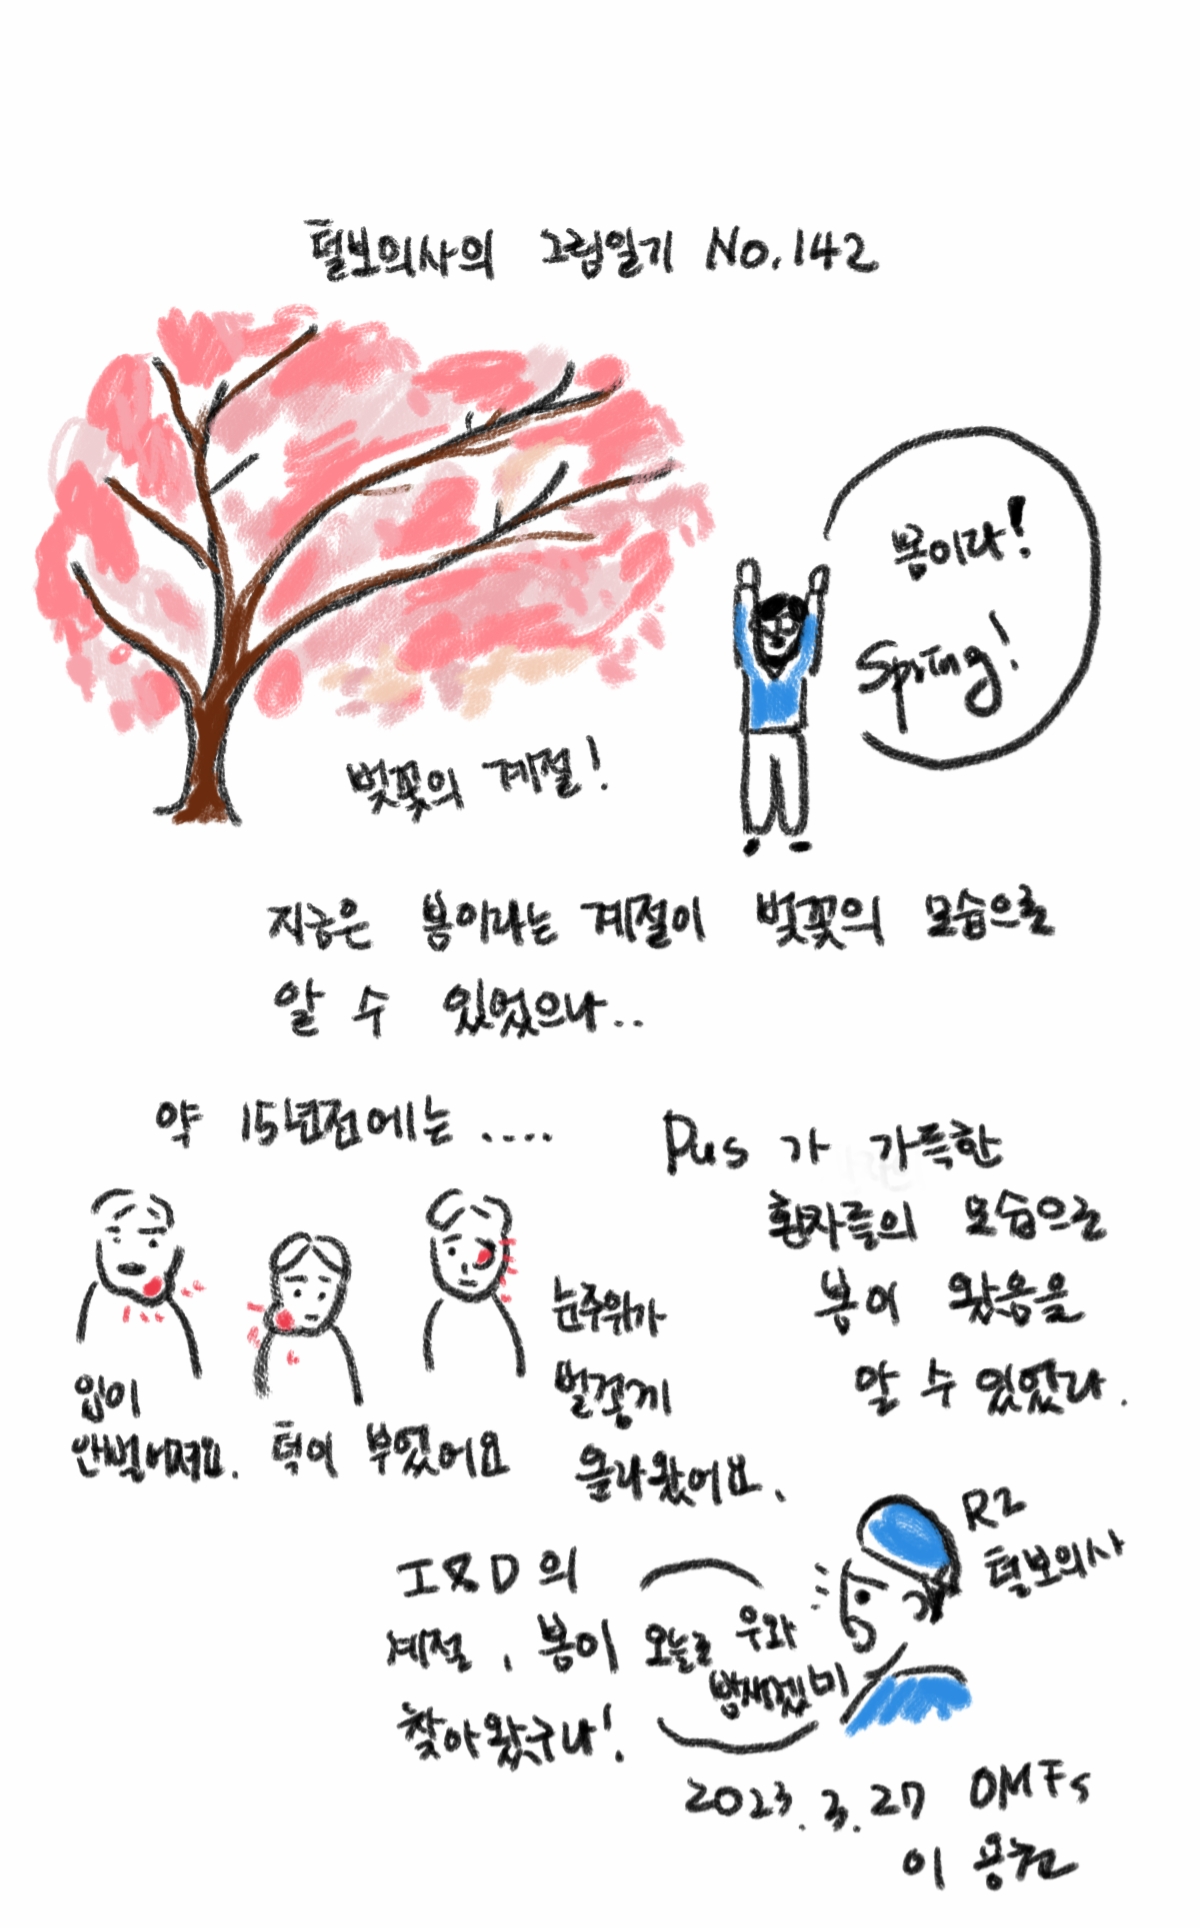 털보의사의 그림일기 No.142
봄이라!
Spring!
벚꽃의 계절!
지금은 봄이라는 계절이 벚꽃의 모습으로
알 수 있었으나..
약 15년전에는 ....
Pus 가 가득한
환자들의 모습으로
봄이 왔음을
알 수 있었다.
입이
안벌어져요.
턱이 부었어요
눈주위가
벌겋게
올라왔어요.
I&D의
계절, 봄이
찾아왔구나!
오늘도 우와
밤새겠네
R2
털보의사
2023.3.27 OMFS
이 용권